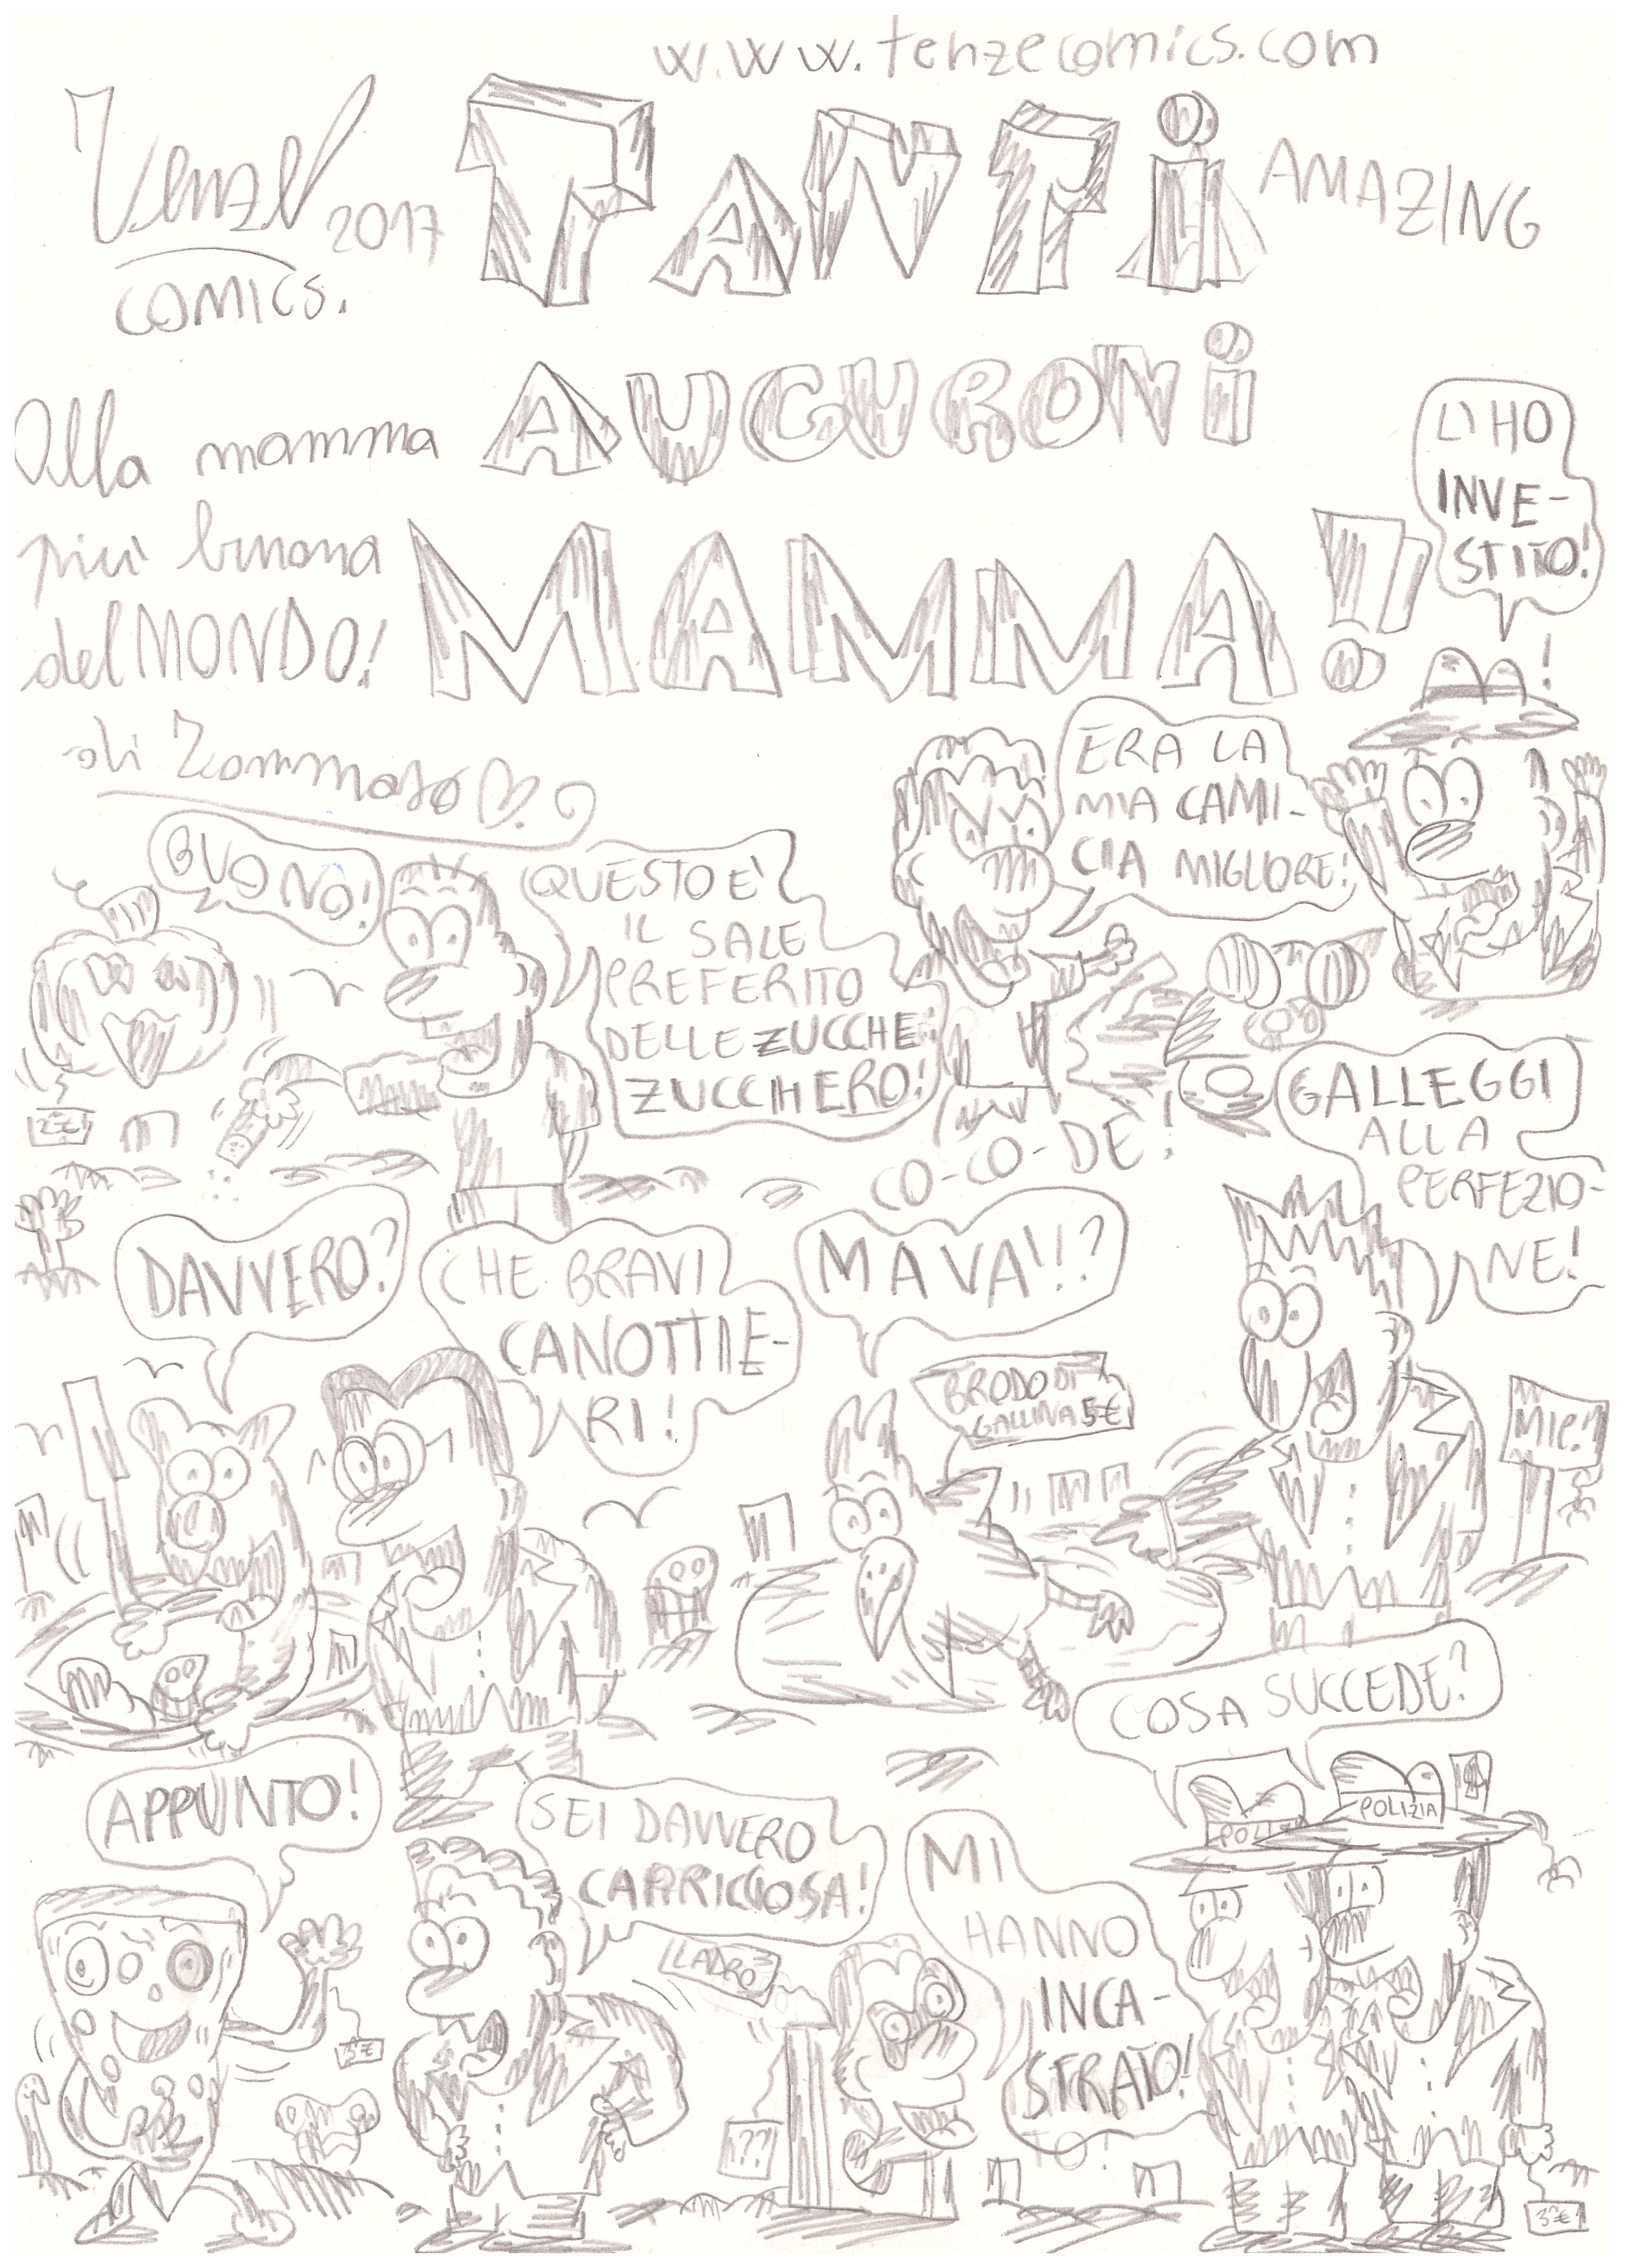 www.tenzecomics.com
Tenze 2017
COMICS.
TANTi
AMAZING
AUGURONi
Alla mamma
più buona
del MONDO!
MAMMA!
di Tommaso
L'HO
INVE-
STITO!
ERA LA
MIA CAMI-
CIA MIGLIORE!
BUONO!
QUESTO E'
IL SALE
PREFERITO
DELLE ZUCCHE:
ZUCCHERO!
2€
CO-CO-DE!
GALLEGGI
ALLA
PERFEZIO-
NE!
DAVVERO?
CHE BRAVI
CANOTTIE-
RI!
MAVA'!!?
BRODO DI
GALLINA 5€
MIE!
COSA SUCCEDE?
APPUNTO!
SEI DAVVERO
CAPRICCIOSA!
MI
HANNO
INCA-
STRATO!
TO!
POLIZIA
POLIZI
LADRO
3€
??
3€